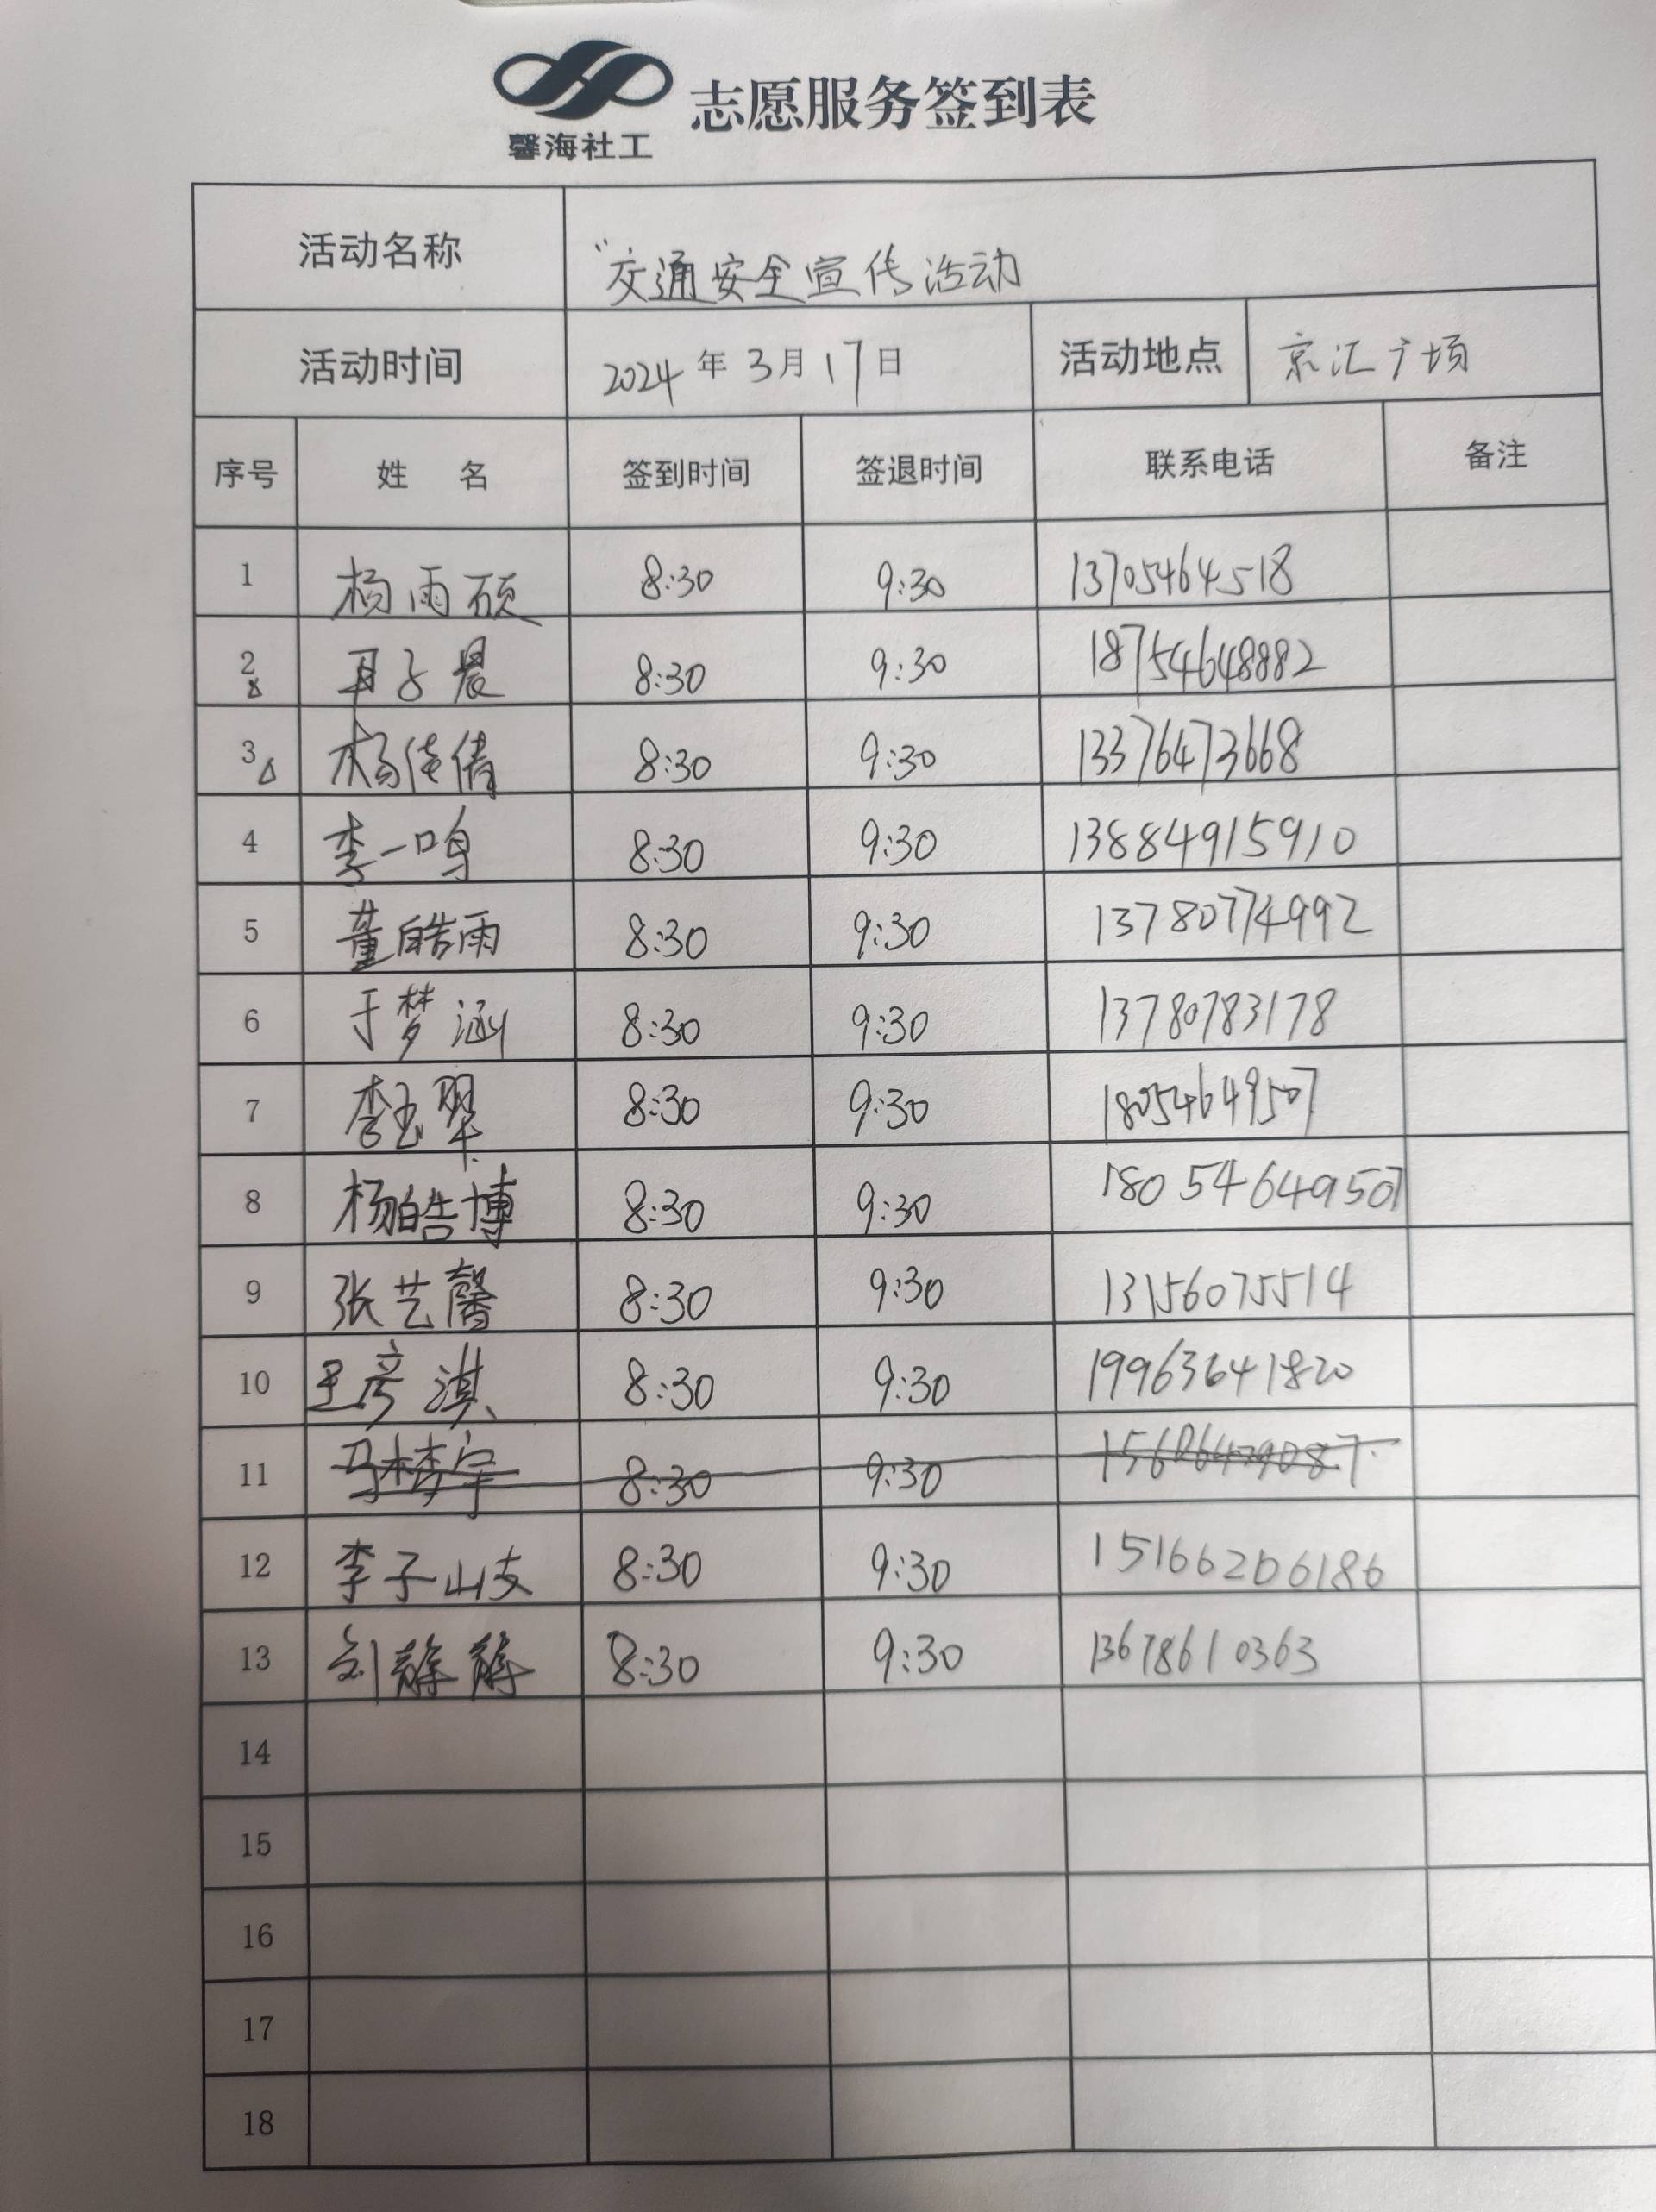 馨海社工
志愿服务签到表
活动名称 "交通安全宣传活动
活动时间 2024年3月17日 活动地点 京汇广场
序号 姓 名 签到时间 签退时间 联系电话 备注
1 杨雨硕 8:30 9:30 13705464518
2 子晨 8:30 9:30 18754648882
3 杨佳倩 8:30 9:30 13376473668
4 李一鸣 8:30 9:30 13884915910
5 董皓雨 8:30 9:30 13780774992
6 于梦涵 8:30 9:30 13780783178
7 李玉翠 8:30 9:30 18054649507
8 杨皓博 8:30 9:30 18054649507
9 张艺馨 8:30 9:30 13156075514
10 王彦淇 8:30 9:30 19963641820
11 马梦宇 8:30 9:30
12 李子岐 8:30 9:30 15166206186
13 刘静静 8:30 9:30 13678610363
14
15
16
17
18